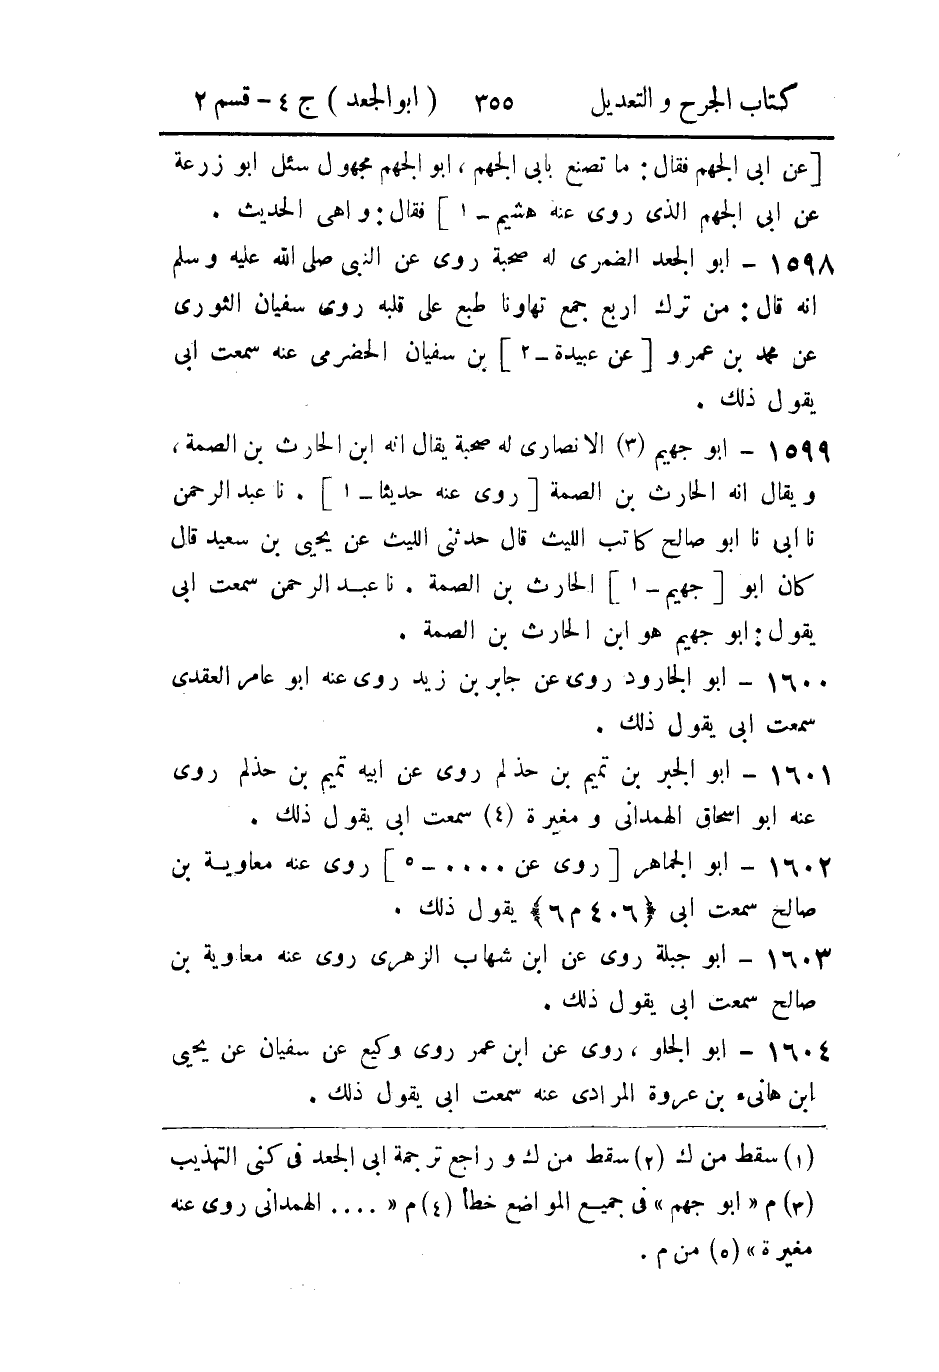 كتاب الجرح و التعديل ٣٥٥ ( ابو الجعد ) ج ٤ - قسم ٢
[ عن ابى الجهم فقال : ما تصنع بابى الجهم ، ابو الجهم مجهول سئل ابو زرعة
عن ابى الجهم الذى روى عنه هشيم - ١ ] فقال : واهى الحديث .
١٥٩٨ - ابو الجعد الضمرى له صحبة روى عن النبى صلى الله عليه وسلم
انه قال : من ترك اربع جمع تهاونا طبع على قلبه روى سفيان الثورى
عن محمد بن عمرو [ عن عبيدة - ٢ ] بن سفيان الحضرمى عنه سمعت ابى
يقول ذلك .
١٥٩٩ - ابو جهيم (٣) الانصارى له صحبة يقال انه ابن الحارث بن الصمة ،
و يقال انه الحارث بن الصمة [ روى عنه حديثا - ١ ] . نا عبد الرحمن
نا ابى نا ابو صالح كاتب الليث قال حدثنى الليث عن يحيى بن سعيد قال
كان ابو [ جهيم - ١ ] الحارث بن الصمة . نا عبد الرحمن سمعت ابى
يقول : ابو جهيم هو ابن الحارث بن الصمة .
١٦٠٠ - ابو الجارود روى عن جابر بن زيد روى عنه ابو عامر العقدى
سمعت ابى يقول ذلك .
١٦٠١ - ابو الجبر بن تميم بن حذلم روى عن ابيه تميم بن حذلم روى
عنه ابو اسحاق الهمدانى و مغيرة (٤) سمعت ابى يقول ذلك .
١٦٠٢ - ابو الجماهر [ روى عن .... - ٥ ] روى عنه معاوية بن
صالح سمعت ابى ﴿٤٠٦ م ٦﴾ يقول ذلك .
١٦٠٣ - ابو جبلة روى عن ابن شهاب الزهرى روى عنه معاوية بن
صالح سمعت ابى يقول ذلك .
١٦٠٤ - ابو الجلو ، روى عن ابن عمر روى وكيع عن سفيان عن يحيى
ابن هانىء بن عروة المرادى عنه سمعت ابى يقول ذلك .
(١) سقط من ك (٢) سقط من ك و راجع ترجمة ابى الجعد فى كنى التهذيب
(٣) م « ابو جهم » فى جميع المواضع خطأ (٤) م « .... الهمدانى روى عنه
مغيرة » (٥) من م .